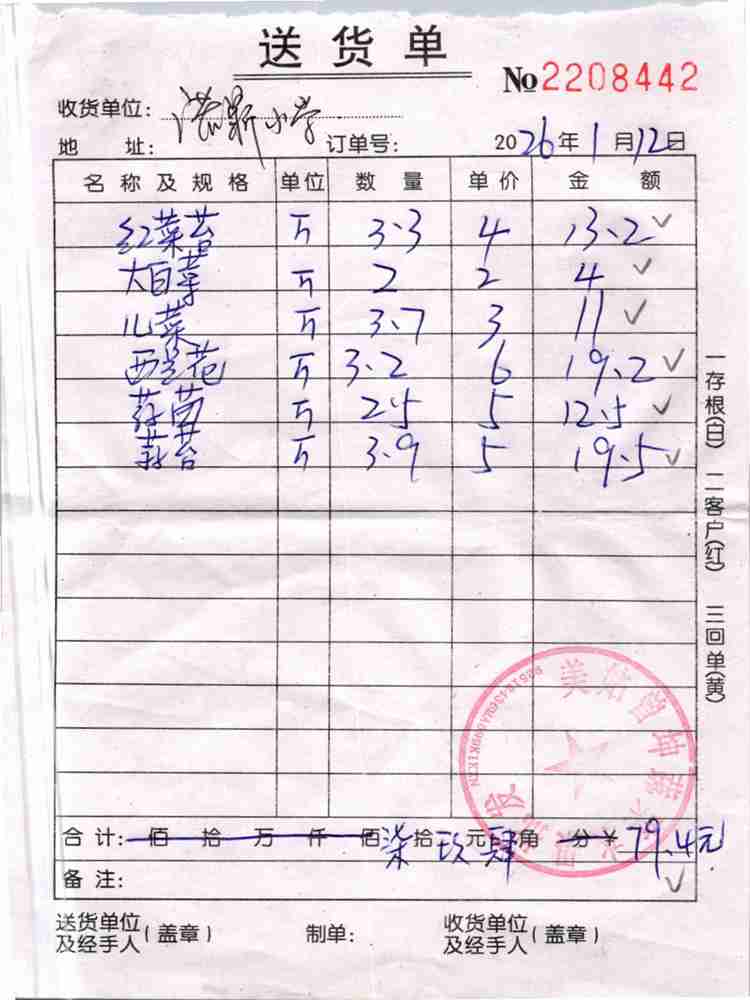 送货单
№2208442
收货单位: 小学
地 址: 订单号: 2026年1月12日
名称及规格 单位 数量 单价 金额
红菜苔 斤 3.3 4 13.2
大白菜 斤 2 2 4
儿菜 斤 3.7 3 11
西兰花 斤 3.2 6 19.2
斤 2.5 5 12.5
斤 3.9 5 19.5
合计: 佰 拾 万 仟 佰 柒拾 玖元 肆角 分 ¥ 79.4元
备注:
送货单位及经手人(盖章) 制单: 收货单位及经手人(盖章)
一存根(白) 二客户(红) 三回单(黄)